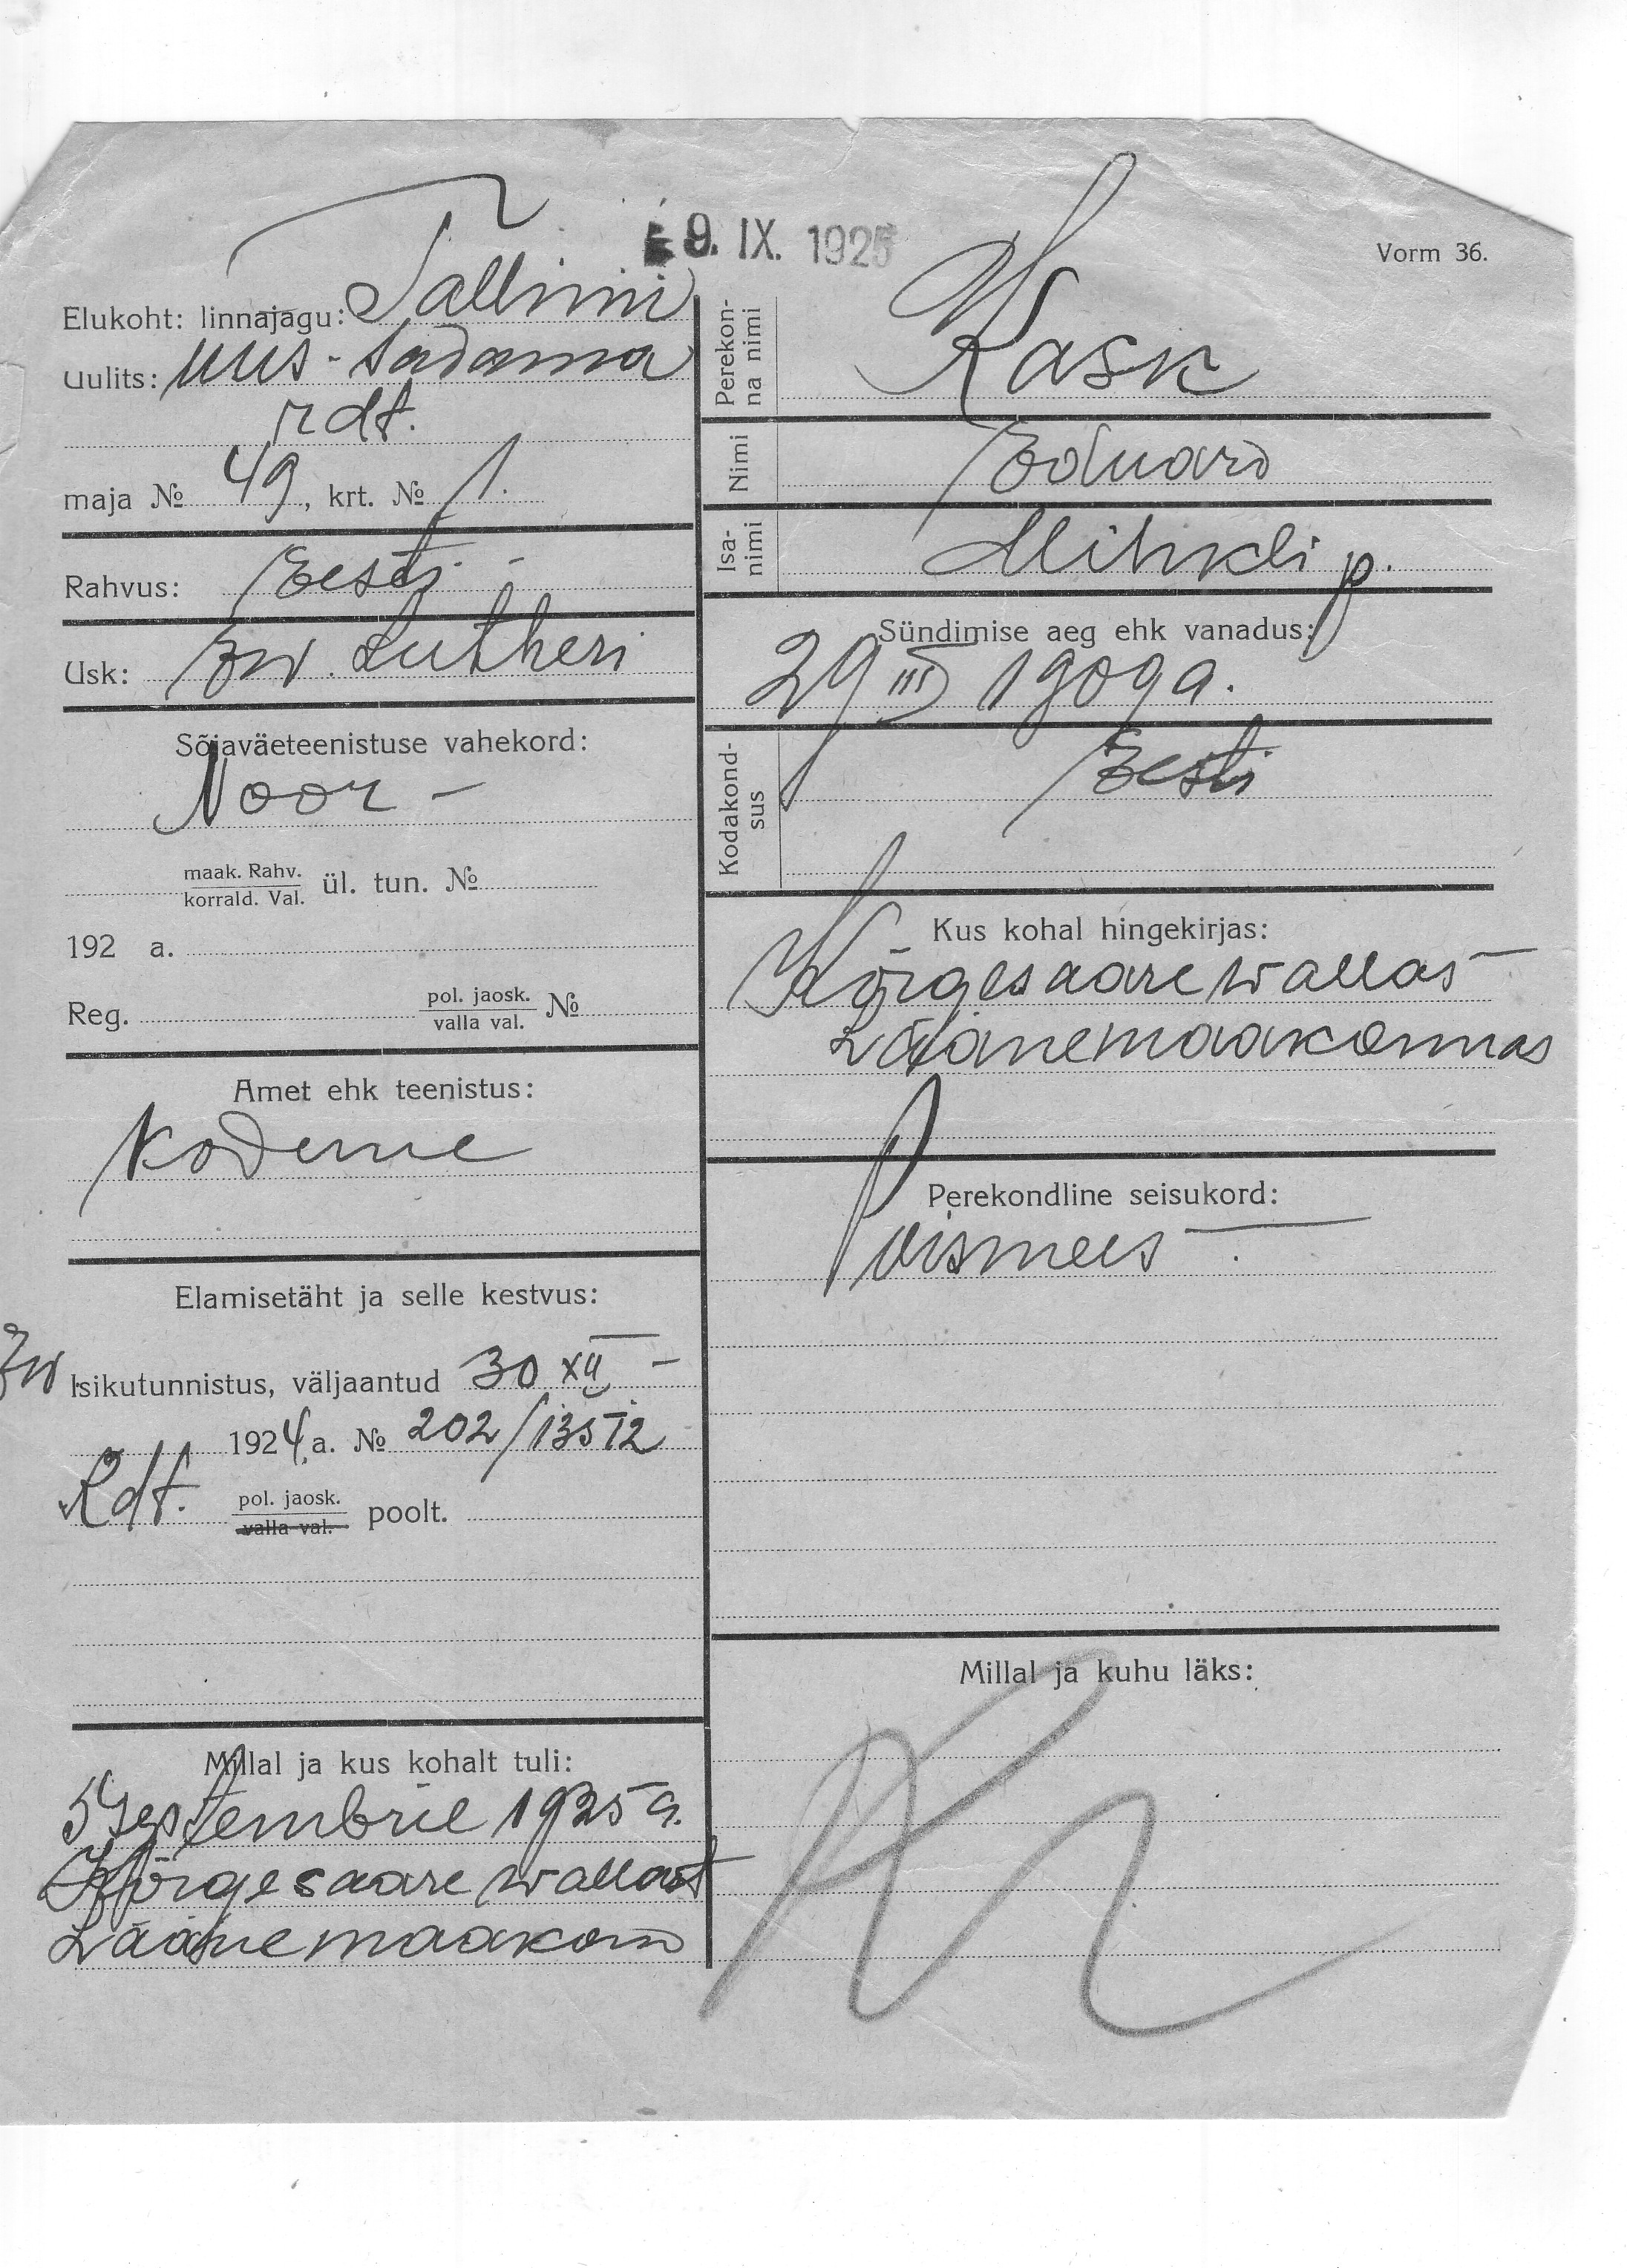 9. IX. 1925
Vorm 36.
Elukoht: linnajagu: Tallinni
Uulits: Uus-Sadama
rdt.
maja № 49, krt. № 1.
Rahvus: Eesti
Usk: Ew. Lutheri
Sõjaväeteenistuse vahekord:
Noor -
maak. Rahv.
korrald. Val. ül. tun. №
192 a.
Reg. pol. jaosk.
valla val. №
Amet ehk teenistus:
Elamisetäht ja selle kestvus:
Isikutunnistus, väljaantud 30 XII -
1924 a. № 202/13512
Rdt. pol. jaosk.
valla val. poolt.
Millal ja kus kohalt tuli:
5 Septembril 1925 a.
Kõrgesaare wallast
Läänemaakon
Perekon-
na nimi Kask
Nimi Eduard
Isa-
nimi Mihkli p.
Sündimise aeg ehk vanadus:
29 III 1909 a.
Kodakond-
sus Eesti
Kus kohal hingekirjas:
Kõrgesaare wallas
Läänemaakonnas
Perekondline seisukord:
Poismees
Millal ja kuhu läks: